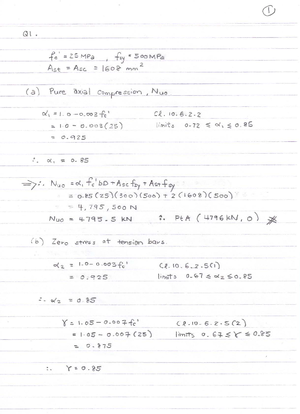 1
Q1.
fc' = 25 MPa , fsy = 500 MPa
Ast = Asc = 1608 mm²
(a) Pure axial compression, Nuo
α₁ = 1.0 - 0.003 fc' Cl. 10.6.2.2
= 1.0 - 0.003 (25) limits 0.72 ≤ α₁ ≤ 0.85
= 0.925
∴ α₁ = 0.85
⇒ ∴ Nuo = α₁ fc' bD + Asc fsy + Ast fsy
= 0.85 (25)(300)(500) + 2 (1608)(500)
= 4,795,500 N
Nuo = 4795.5 kN ∴ Pt A (4796 kN, 0)
Zero stress at tension bars.
α₂ = 1.0 - 0.003 fc' Cl. 10.6.2.5(1)
= 0.925 limits 0.67 ≤ α₂ ≤ 0.85
∴ α₂ = 0.85
γ = 1.05 - 0.007 fc' Cl. 10.6.2.5(2)
= 1.05 - 0.007 (25) limits 0.67 ≤ γ ≤ 0.85
= 0.875
∴ γ = 0.85